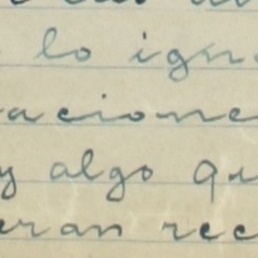 lo ign
acione
y algo qu
eran rec